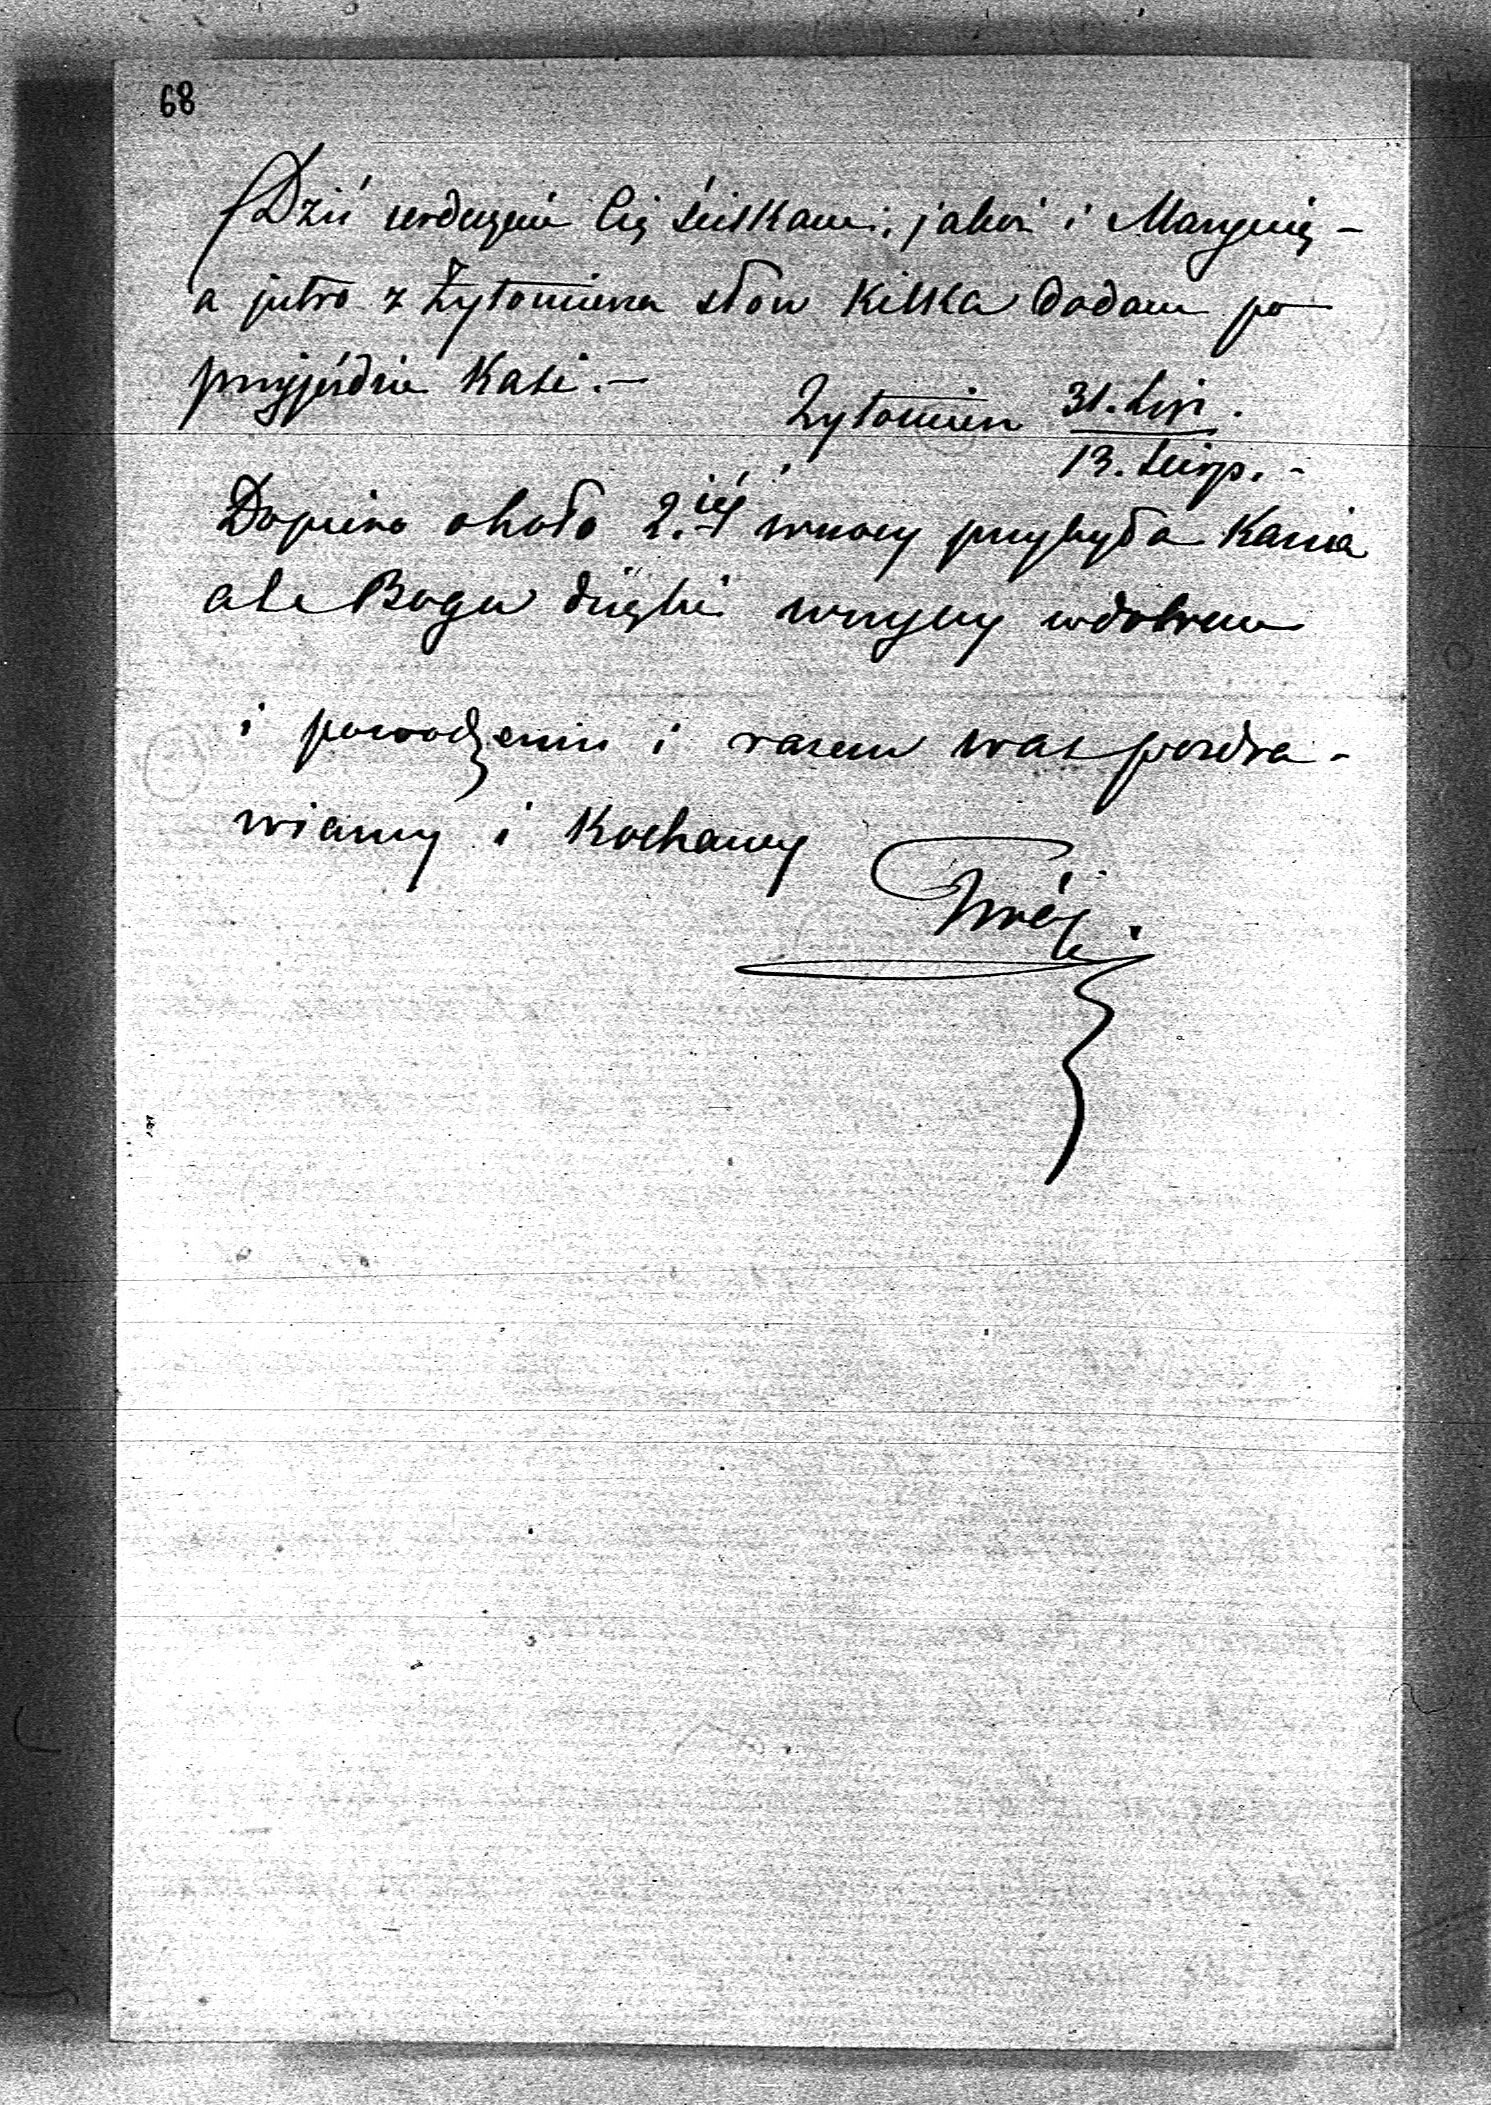 68
Dziś serdecznie Cię ściskam; jakoś i Marynię –
a jutro z Żytomierza słów kilka dodam po
przyjeździe Kasi. –
Żytomierz 31. Lip.
13. Sierp. –
Dopiero około 2.iéj wnocy przybyła Kasia
ale Bogu dzięki wszyscy wdobrem
i powodzeniu i razem was pozdra-
wiamy i Kochamy
Twój.